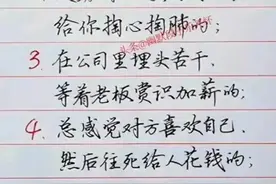 给你掏心掏肺的;
3. 在公司里埋头苦干,
等着老板赏识加薪的;
4. 总感觉对方喜欢自己.
然后往死给人花钱的;